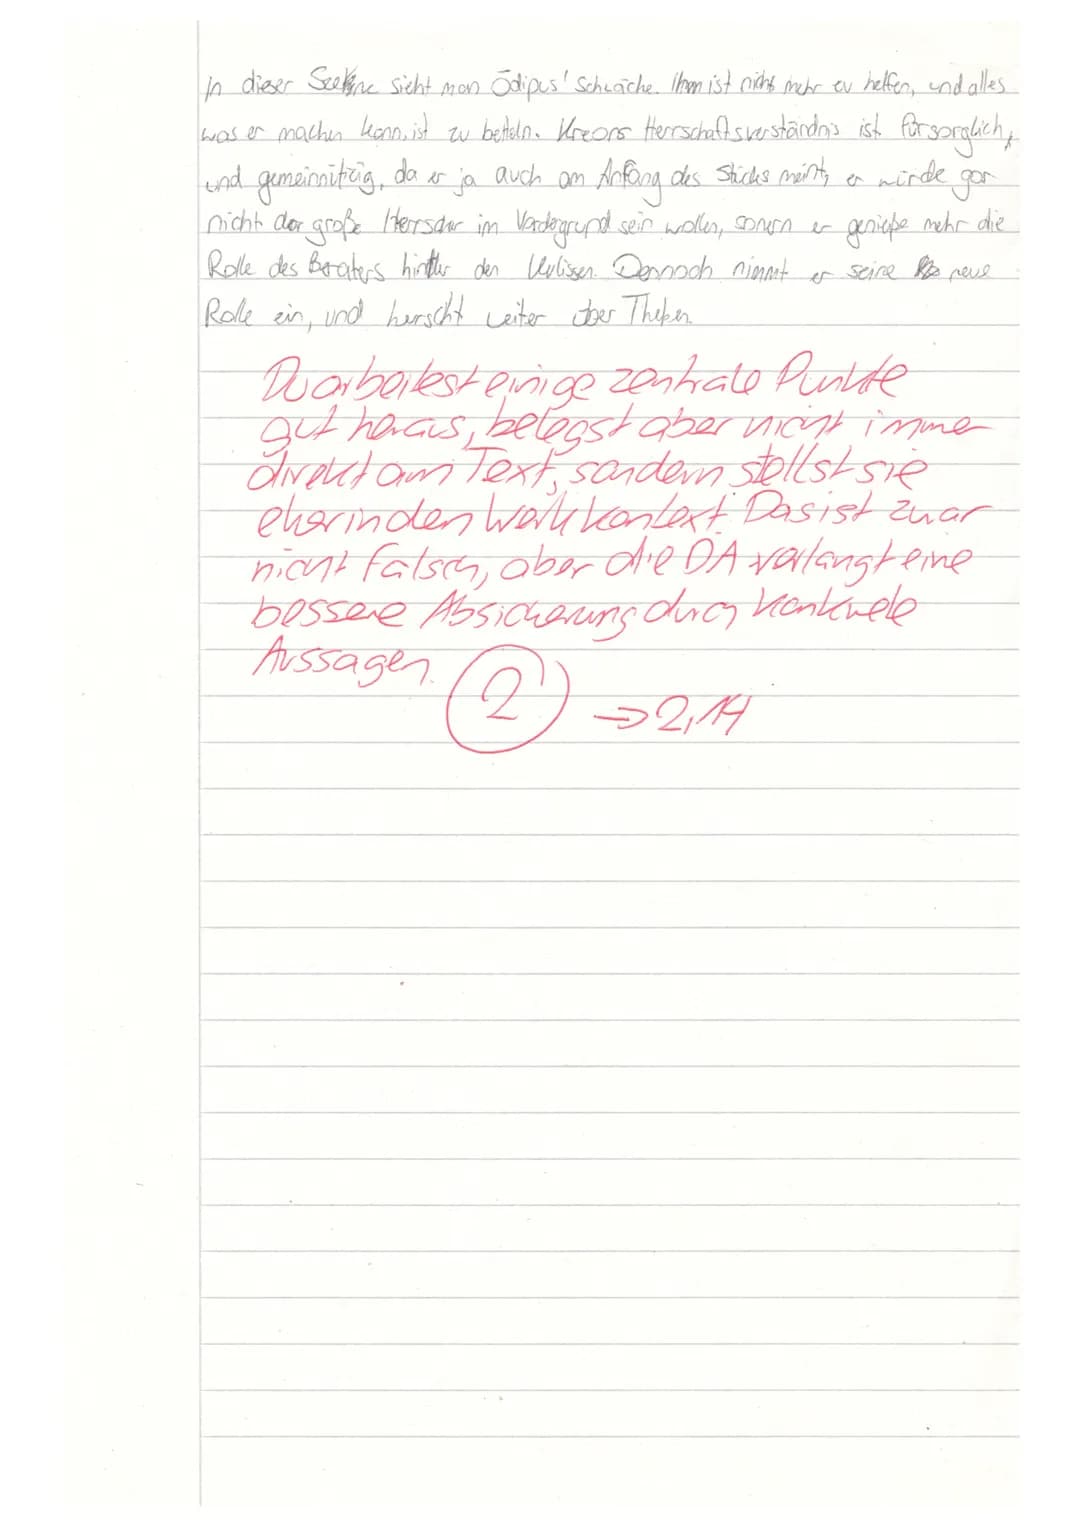 In dieser Szene sieht man Ödipus' Schwäche. Ihm ist nicht mehr zu helfen, und alles
was er machen kann, ist zu betteln. Kreons Herrschaftsverständnis ist fürsorglich,
und gemeinnützig, da er ja auch am Anfang des Stücks meint, er würde gar
nicht der große Herrscher im Vordergrund sein wollen, sonern er genieße mehr die
Rolle des Beraters hinter den Kulissen. Dennoch nimmt er seine neue
Rolle ein, und herscht weiter über Theben.
Du arbeitest einige zentrale Punkte
gut heraus, belegst aber nicht immer
direkt am Text, sondern stellst sie
eher in den Werkkontext. Das ist zwar
nicht falsch, aber die DA verlangt eine
bessere Absicherung durch konkrete
Aussagen.
2 → 2,14